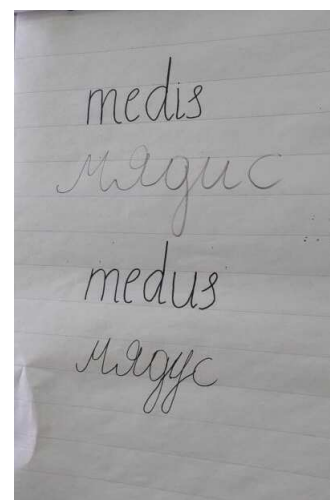 medis
мядис
medus
мядус